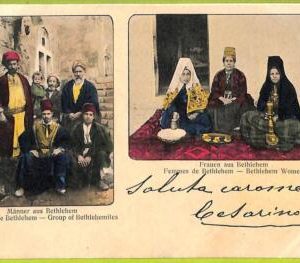 Männer aus Bethlehem
de Bethlehem — Group of Bethlehemites
Frauen aus Bethlehem
Femmes de Bethlehem — Bethlehem Wome
Saluta carame
Cesarino